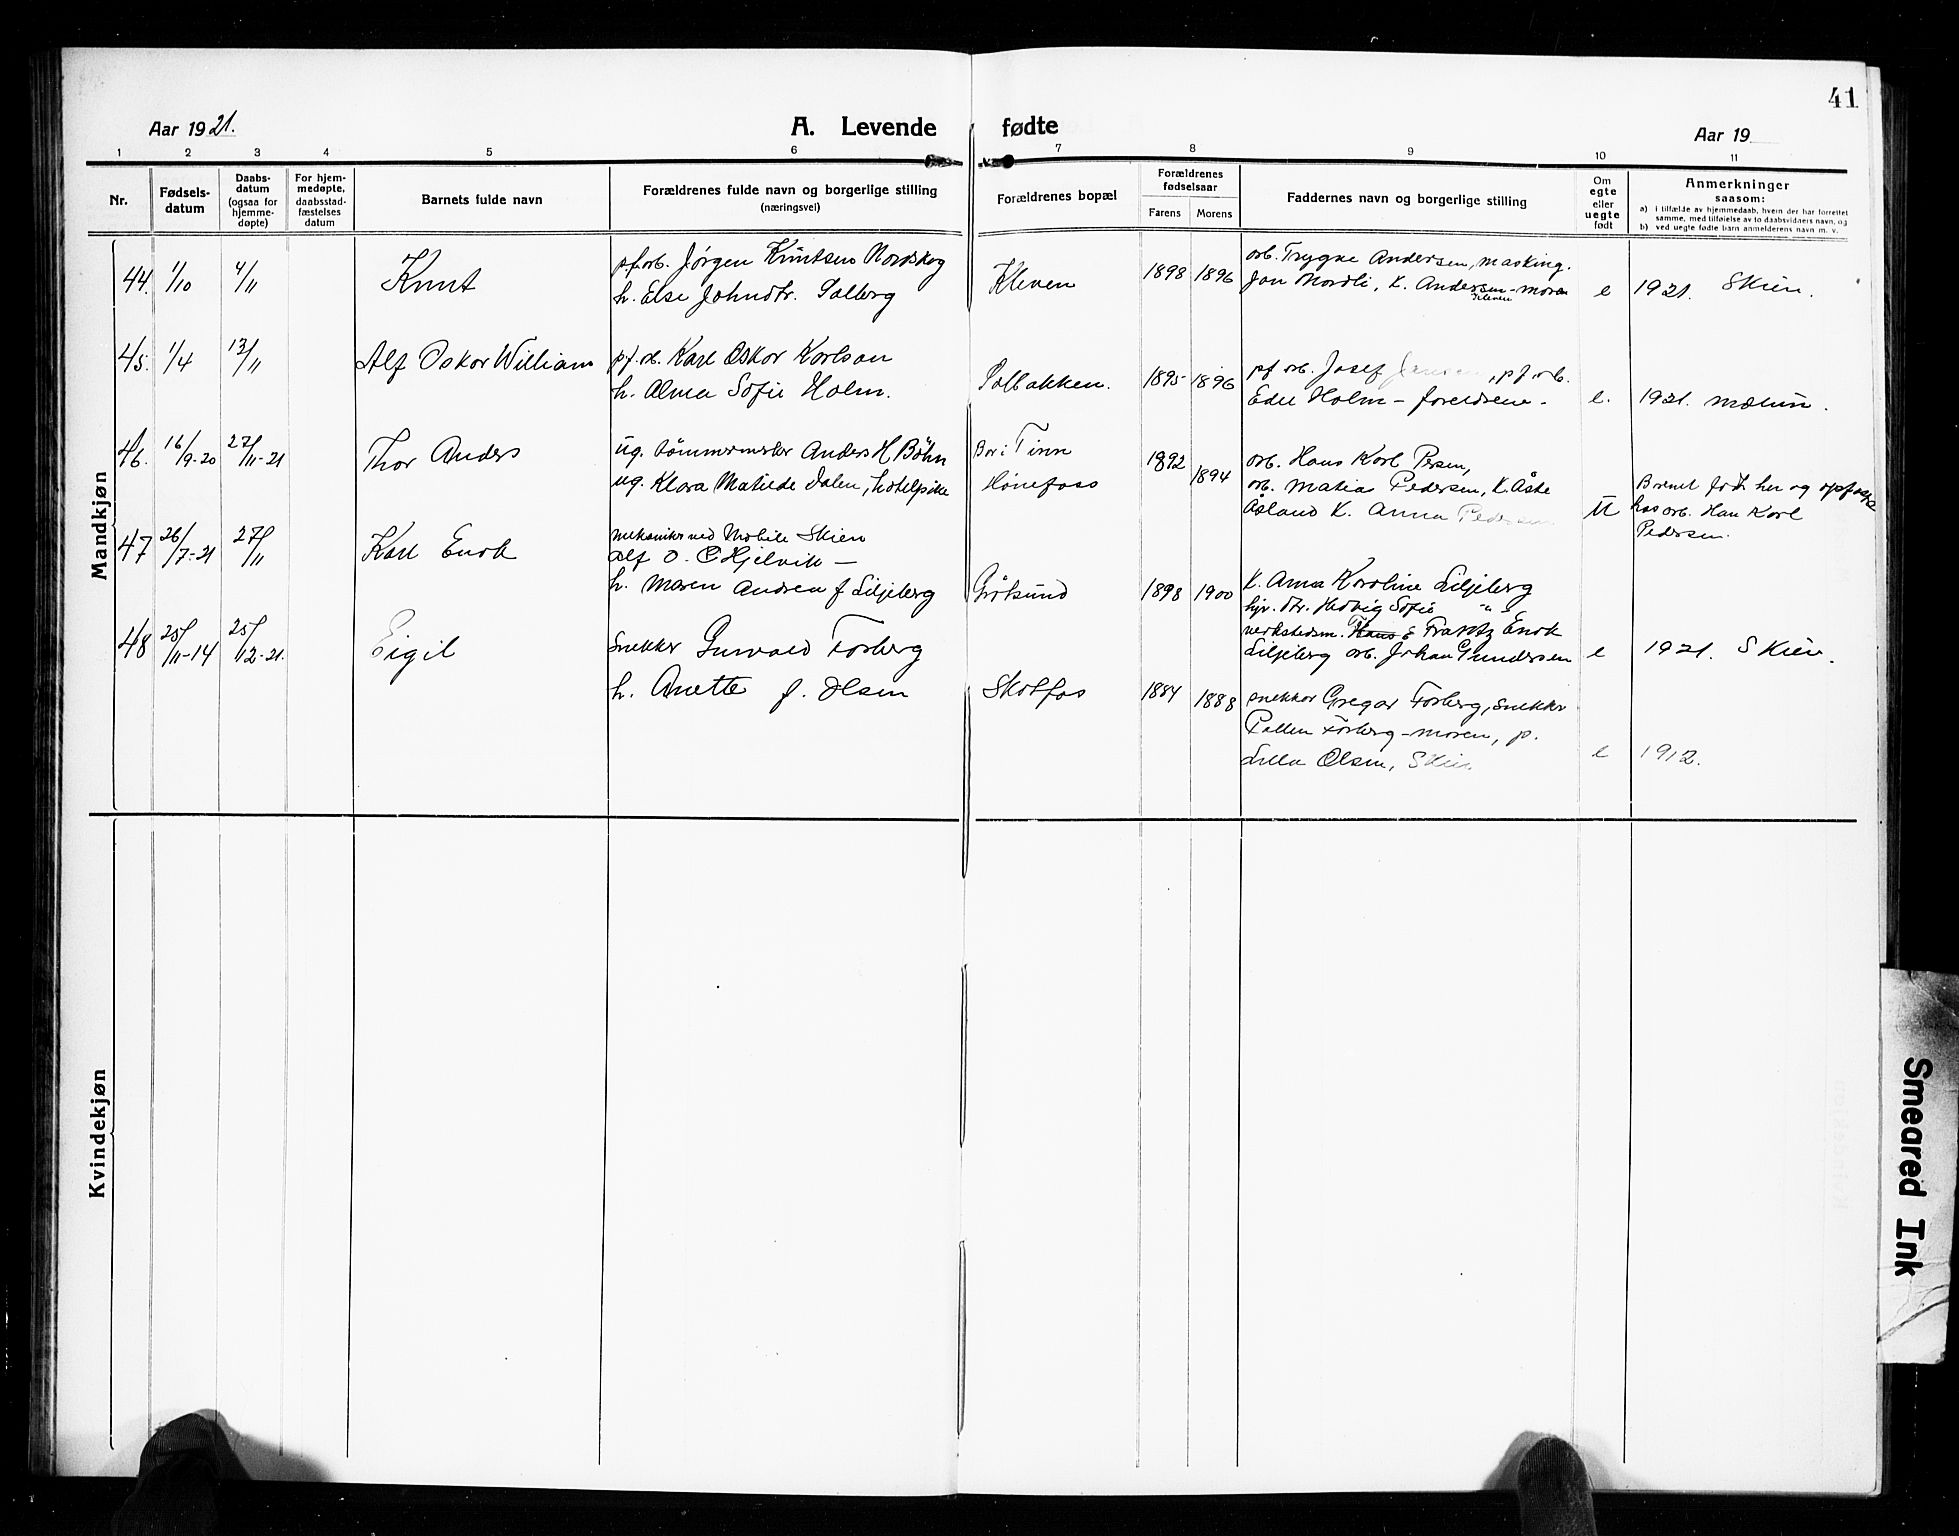 41
Aar 1921.
A. Levende fødte
Aar 19
1 2 3 4 5 6 7 8 9 10 11
Nr.
Fødsels-
datum
Daabs-
datum
(ogsaa for
hjemme-
døpte)
For hjem-
medøpte,
daabsstad-
fæstelses
datum
Barnets fulde navn
Forældrenes fulde navn og borgerlige stilling
(næringsvei)
Forældrenes bopæl
Forældrenes
fødselsaar
Farens Morens
Faddernes navn og borgerlige stilling
Om
egte
eller
uegte
født
Anmerkninger
saasom:
a) i tilfælde av hjemmedaab, hvem der har forrettet
samme, med tilføielse av to daabsvidners navn, og
b) ved uegte fødte barn anmelderens navn m. v.
Mandkjøn
44. 1/10 4/11 Knut
pf.arb. Jørgen Knutsen Nordskog
h. Else Johndtr. Solberg
Kleven 1898 1896
arb. Trygve Andersen, masking.
Jon Mordli, k. Andersen - moren
Kleven
e 1921. Skien.
45. 1/4 13/11 Alf Oskar William
pf. arb. Karl Oskar Karlson
h. Alma Sofie Holm.
Solbakken. 1895 1896
pf arb. Josef Jansen, pf. arb.
Edv Holm - foreldrene.
e. 1921. Mælum.
46. 16/9-20 27/11-21 Thor Anders
ug. tømmermester Anders H Bøhn
ug. Klara Matilde Dalen, hotelpike
Bor i Tinn
Hønefoss
1892 1894
arb. Hans Karl Persen,
arb. Matia Pedersen, k. Åste
Åsland k. Anna Pedersen
U
Barnet født her og opfostr
hos arb. Han Karl
Pedersen.
47 26/7-21 27/11 Karl Enok
mekaniker ved Mobile Skien
Alf O. C Hjelvik —
h. Maren Andrea f Liljeberg
Gråtsund 1898 1900
k. Anna Karoline Liljeberg
hjv. dtr. Hedvig Sofie "
verkstedsm. Hans E Frantz Enok
Liljeberg arb. Johan Gundersen
e 1921. Skien.
48 25/11-14 25/12-21. Eigil
Snekker Gunvald Forberg
h. Anette f. Olsen
Skotfos 1884 1888
snekker Gregar Forberg, snekker
Pallen Forberg - moren, p.
Lilla Olsen, Skien
e 1912.
Kvindekjøn
Smeared Ink